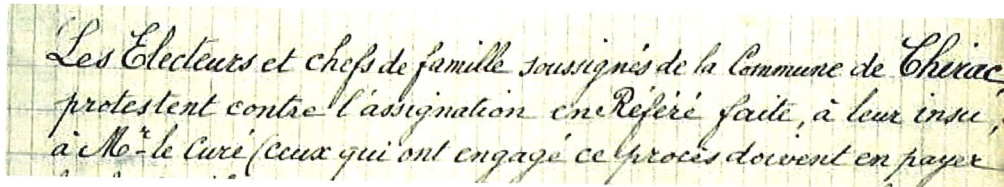 Les Electeurs et chefs de famille soussignés de la Commune de Chirac
protestent contre l'assignation en Référé faite, à leur insu,
à Mr le Curé (ceux qui ont engagé ce procès doivent en payer